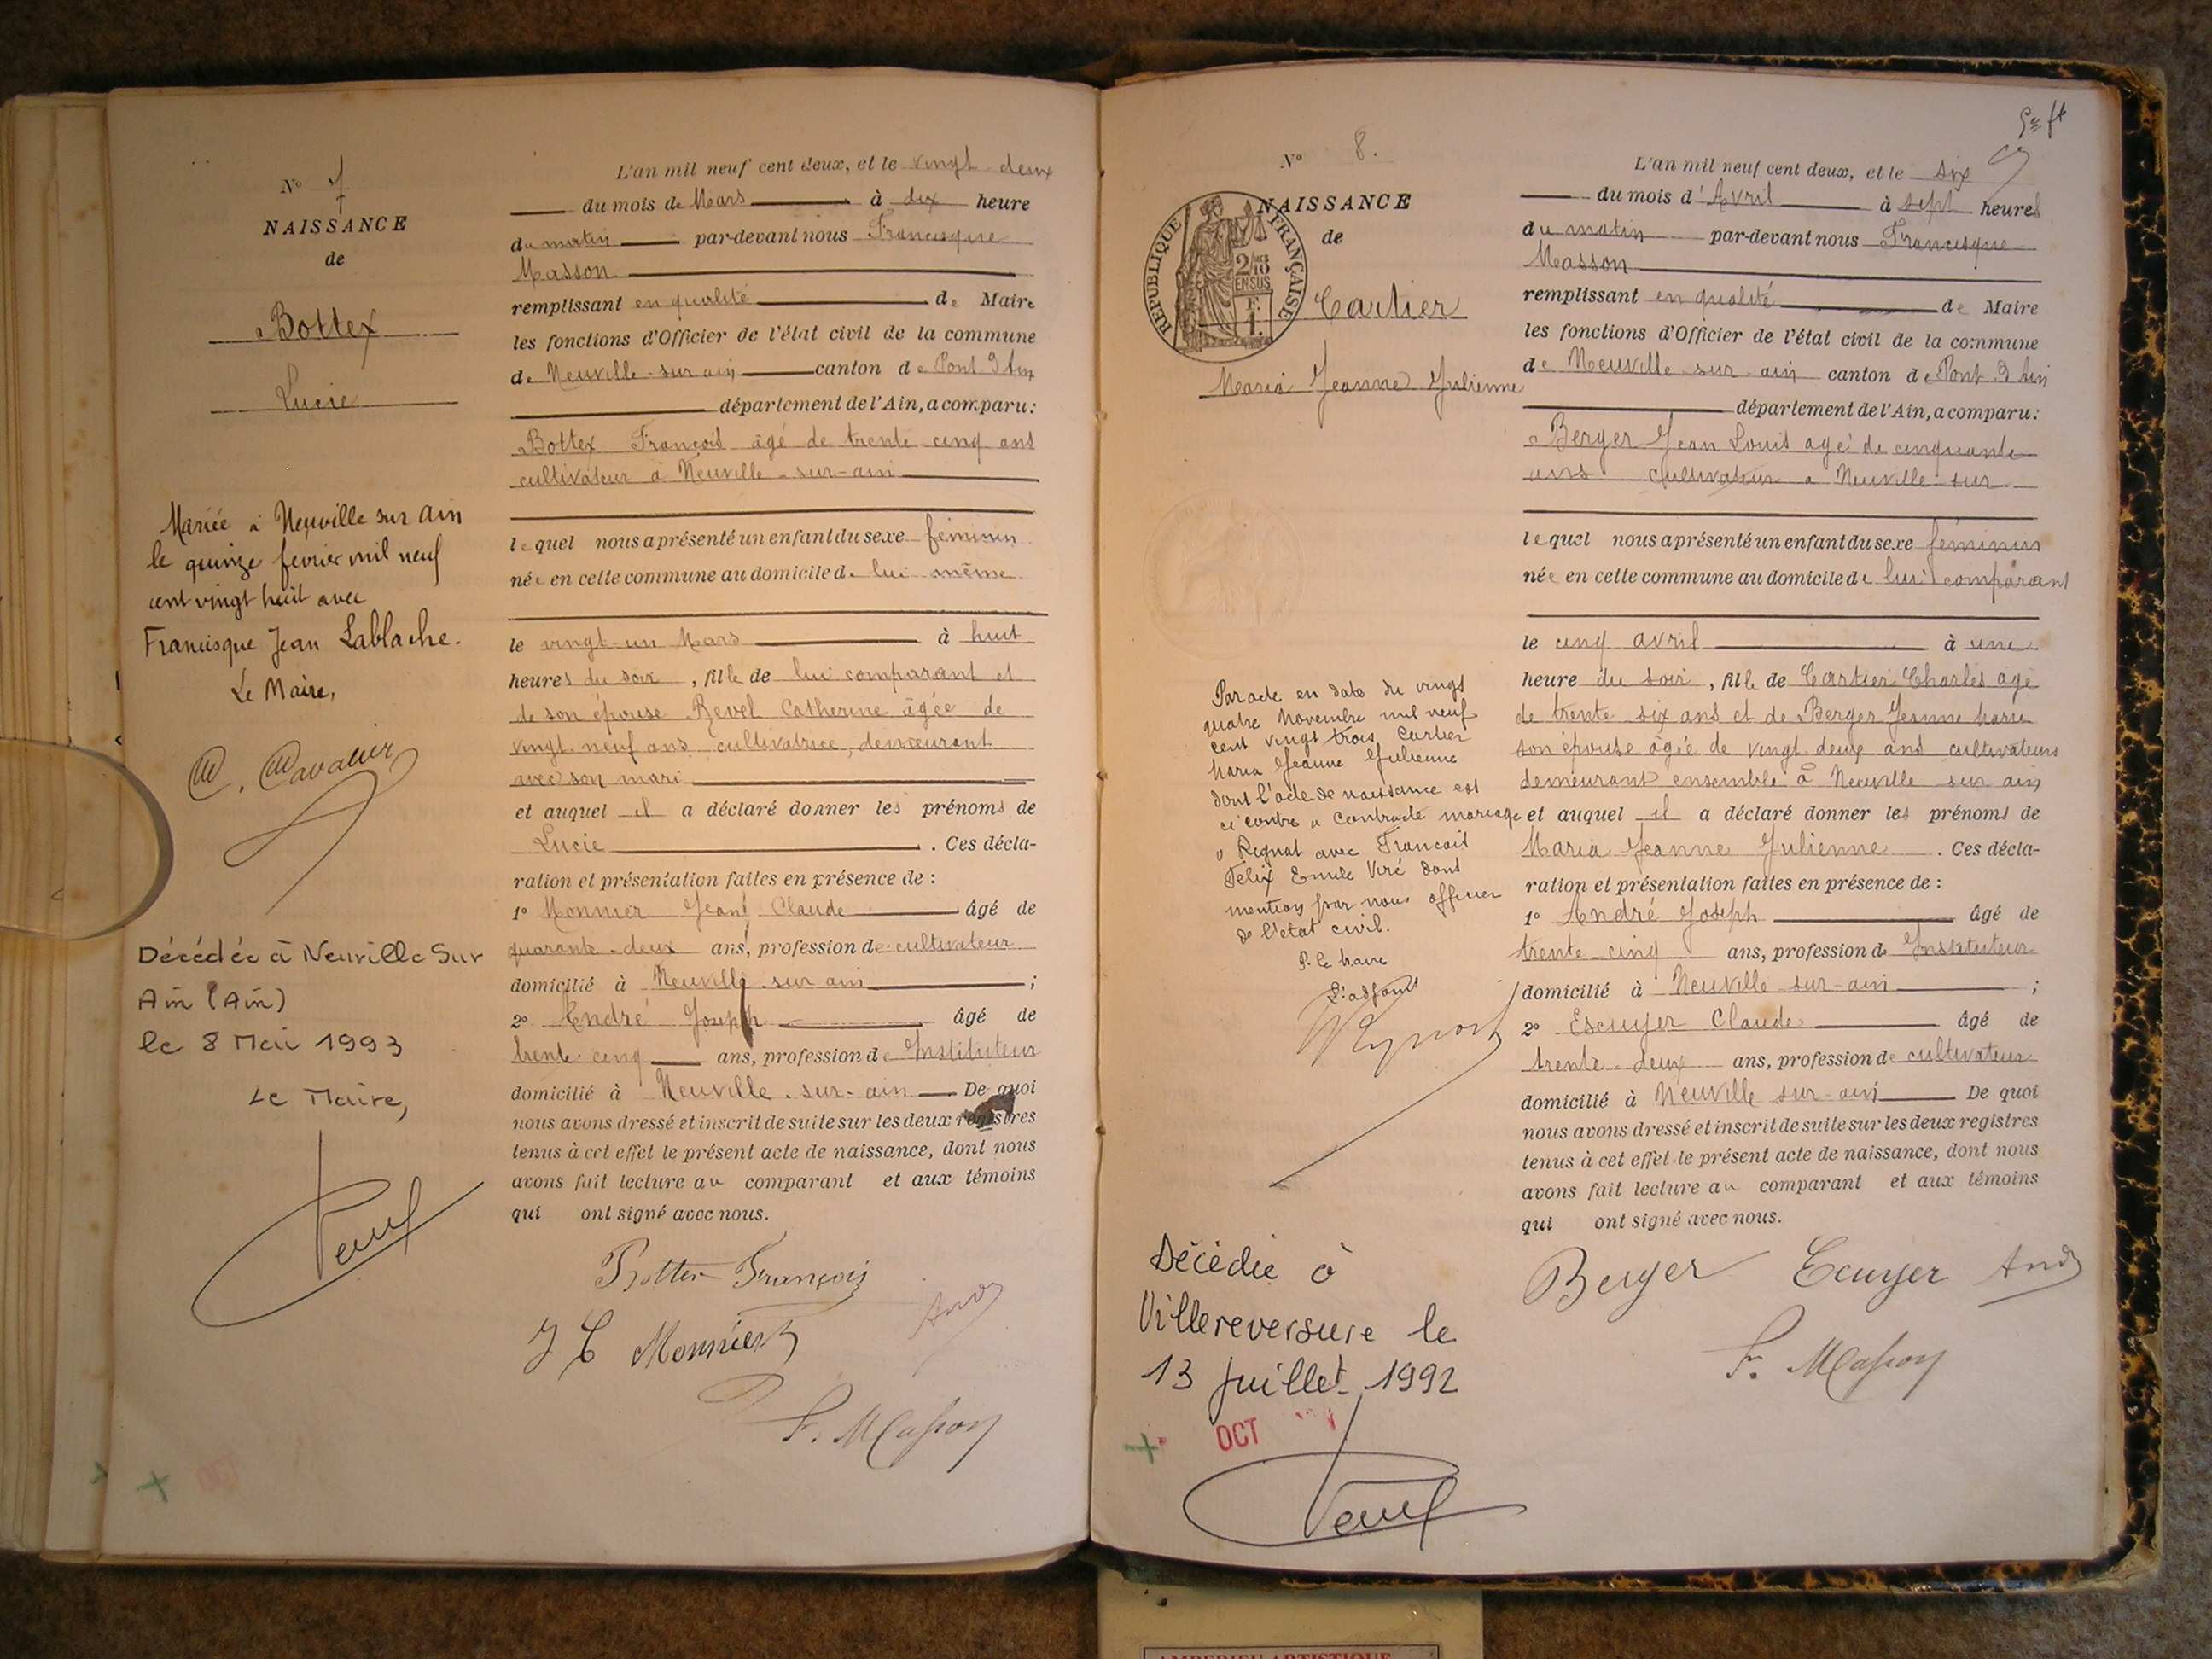 N° 7
NAISSANCE
de
Bottex
Lucie
Mariée à Neuville sur Ain
le quinze fevrier mil neuf
cent vingt huit avec
Francisque Jean Lablache.
Le Maire,
Cavalier
Décédée à Neuville Sur
Ain (Ain)
le 8 Mai 1993
Le Maire,
L'an mil neuf cent deux, et le vingt deux
du mois de Mars à dix heure
du matin par-devant nous Francisque
Masson
remplissant en qualité de Maire
les fonctions d'Officier de l'état civil de la commune
de Neuville-sur ain canton de Pont d'Ain
département de l'Ain, a comparu:
Bottex François âgé de trente cinq ans
cultivateur à Neuville-sur-ain
lequel nous a présenté un enfant du sexe féminin
née en cette commune au domicile de lui même
le vingt-un Mars à huit
heures du soir, fille de lui comparant et
de son épouse Revel Catherine âgée de
vingt neuf ans cultivatrice, demeurant
avec son mari
et auquel il a déclaré donner les prénoms de
Lucie. Ces décla-
ration et présentation faites en présence de :
1° Monnier Jean Claude âgé de
quarante-deux ans, profession de cultivateur
domicilié à Neuville-sur ain ;
2° André Joseph âgé de
trente-cinq ans, profession de Instituteur
domicilié à Neuville-sur-ain De quoi
nous avons dressé et inscrit de suite sur les deux registres
tenus à cet effet le présent acte de naissance, dont nous
avons fait lecture au comparant et aux témoins
qui ont signé avec nous.
Bottex François
J C Monnier
F. Masson
N° 8.
NAISSANCE
de
REPUBLIQUE FRANÇAISE
2/10 EN SUS
Cartier
Maria Jeanne Julienne
Par acte en date du vingt
quatre Novembre mil neuf
cent vingt trois Cartier
Maria Jeanne Julienne
dont l'acte de naissance est
ci contre a contracté mariage
à Rignat avec François
Felix Emile Viré dont
mention par nous officier
de l'etat civil.
P. le Maire
L'adjoint
Décédée à
Villereversure le
13 Juillet 1992
OCT
L'an mil neuf cent deux, et le six
du mois d'Avril à sept heures
du matin par-devant nous Francisque
Masson
remplissant en qualité de Maire
les fonctions d'Officier de l'état civil de la commune
de Neuville-sur-ain canton de Pont d'Ain
département de l'Ain, a comparu:
Berger Jean Louis agé de cinquante
ans cultivateur a Neuville-sur
lequel nous a présenté un enfant du sexe féminin
née en cette commune au domicile de lui comparant
le cinq avril à une
heure du soir, fille de Cartier Charles agé
de trente six ans et de Berger Jeanne Marie
son épouse âgée de vingt-deux ans cultivateurs
demeurant ensemble à Neuville sur ain
et auquel il a déclaré donner les prénoms de
Maria Jeanne Julienne. Ces décla-
ration et présentation faites en présence de :
1° André Joseph âgé de
trente-cinq ans, profession de Instituteur
domicilié à Neuville-sur-ain ;
2° Escuyer Claude âgé de
trente-deux ans, profession de cultivateur
domicilié à Neuville sur-ain De quoi
nous avons dressé et inscrit de suite sur les deux registres
tenus à cet effet le présent acte de naissance, dont nous
avons fait lecture au comparant et aux témoins
qui ont signé avec nous.
Berger Ecuyer
F. Masson
AMBERIEU ARTISTIQUE